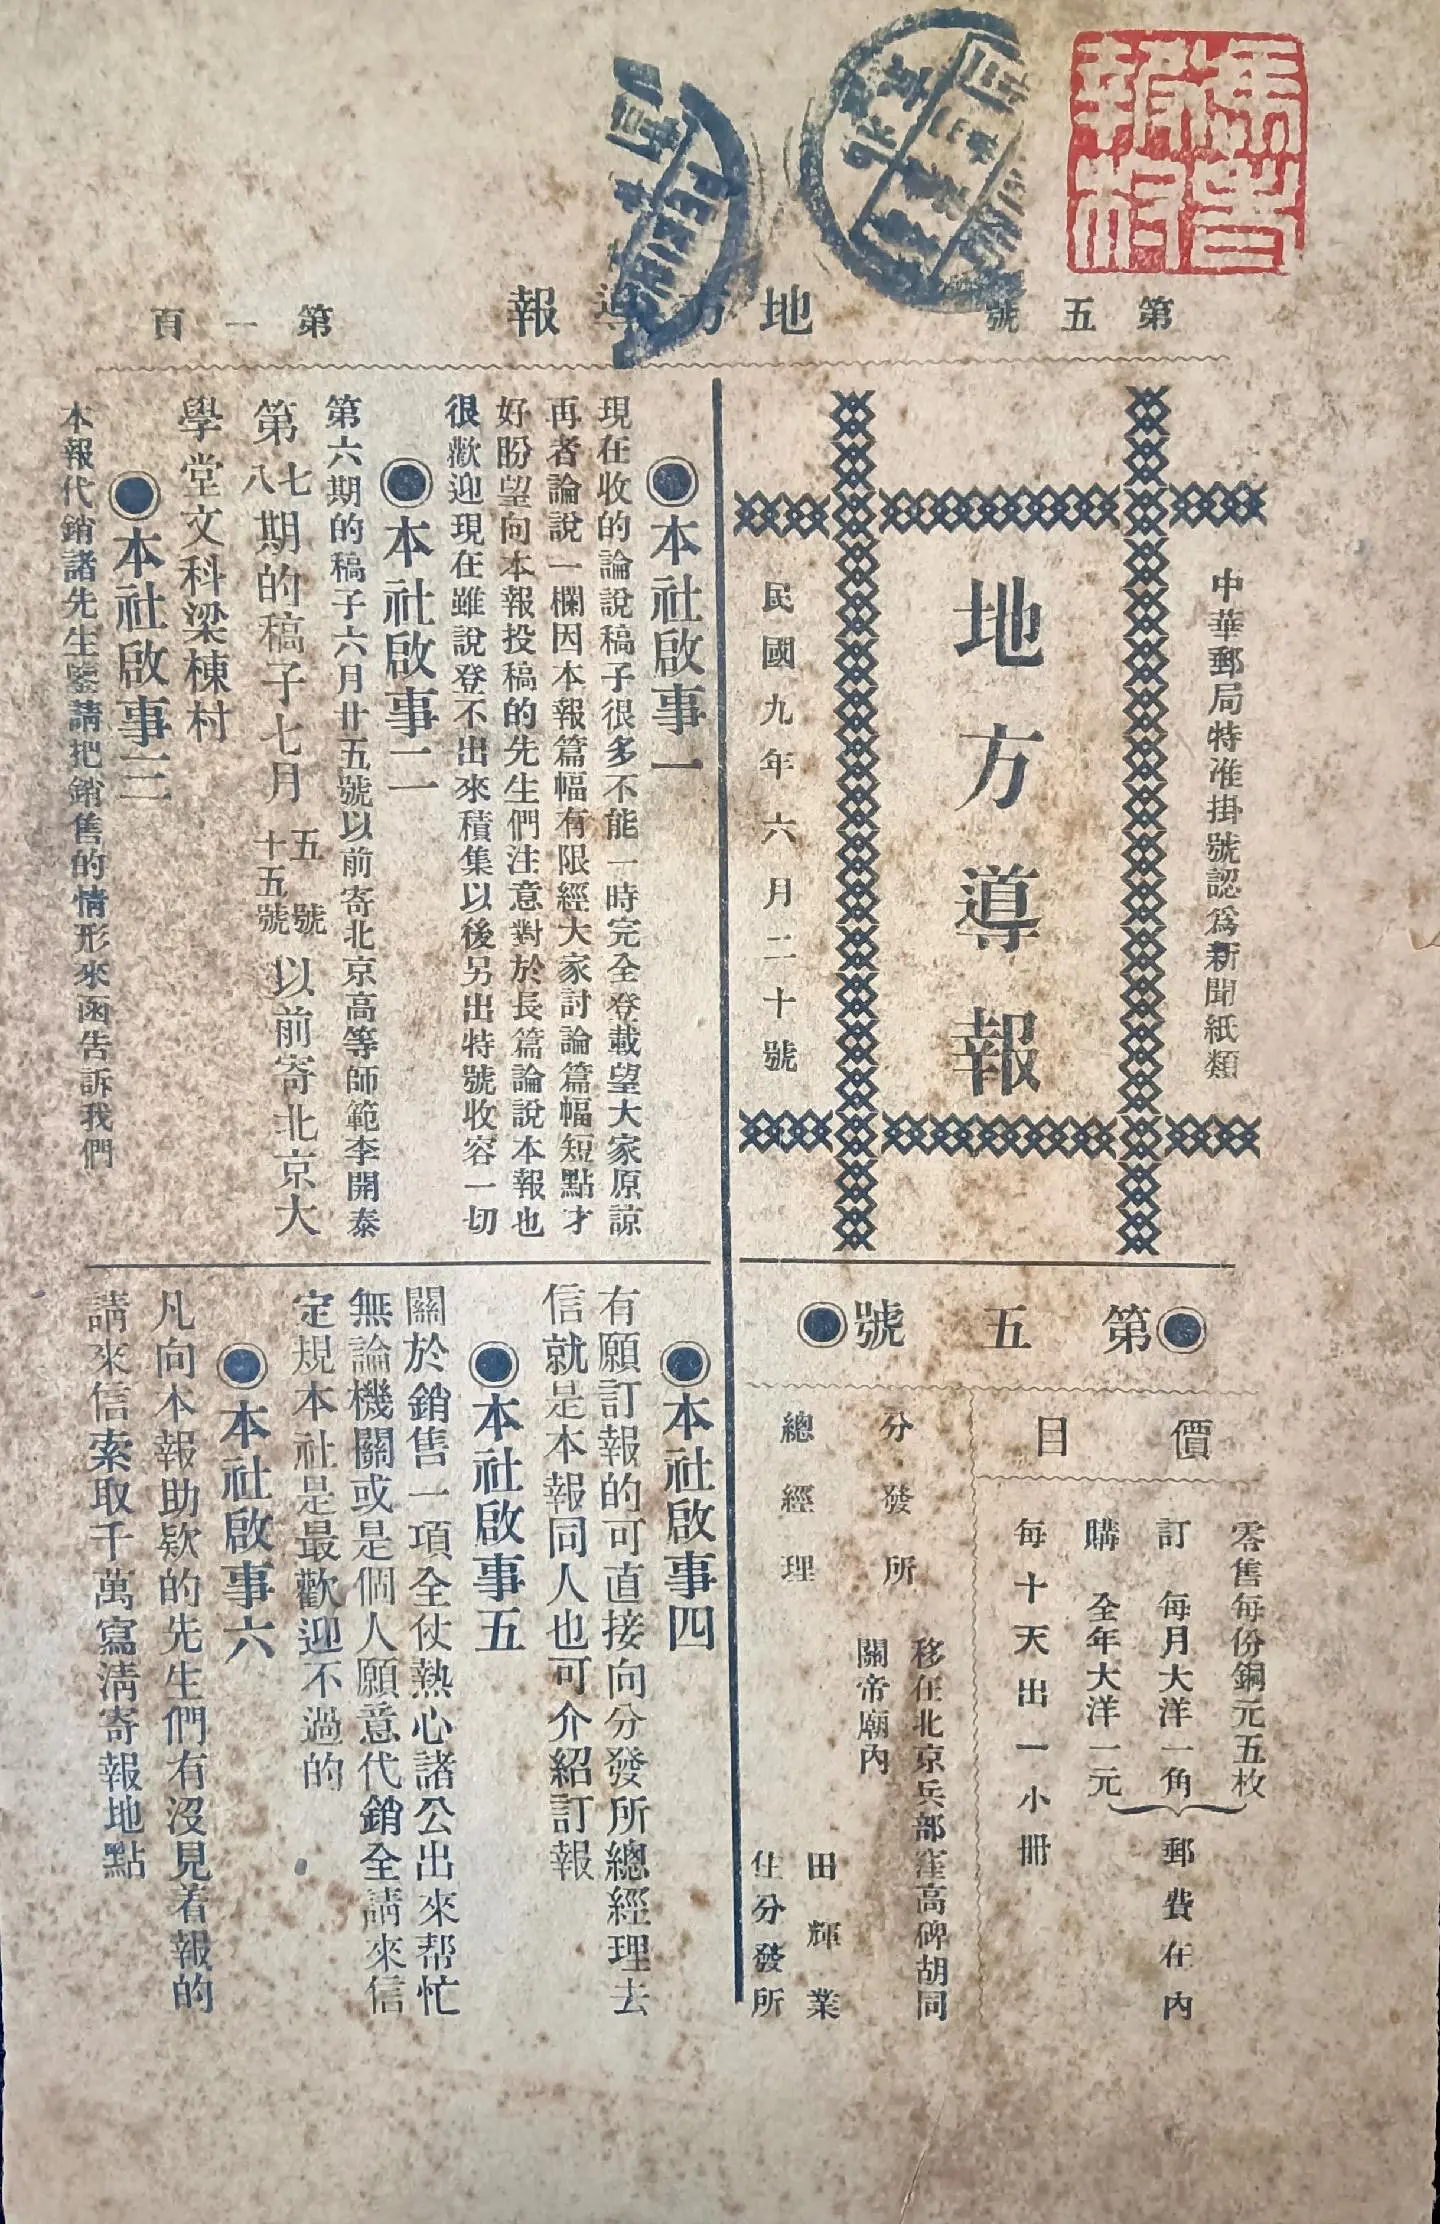 第五號
地方導報
第一百
中華郵局特准掛號認為新聞紙類
地方導報
民國九年六月二十號
第五號
價目
零售每份銅元五枚
訂 每月大洋一角
購 全年大洋一元
郵費在內
每十天出一小冊
分發所
移在北京兵部窪高碑胡同
關帝廟內
總經理
田輝業
住分發所
本社啟事一
現在收的論說稿子很多不能一時完全登載望大家原諒
再者論說一欄因本報篇幅有限經大家討論篇幅短點才
好盼望向本報投稿的先生們注意對於長篇論說本報也
很歡迎現在雖說登不出來積集以後另出特號收容一切
本社啟事二
第六期的稿子六月廿五號以前寄北京高等師範李開泰
第七八期的稿子七月五號十五號以前寄北京大
學堂文科梁棟村
本社啟事三
本報代銷諸先生鑒請把銷售的情形來函告訴我們
本社啟事四
有願訂報的可直接向分發所總經理去
信就是本報同人也可介紹訂報
本社啟事五
關於銷售一項全仗熱心諸公出來帮忙
無論機關或是個人願意代銷全請來信
定規本社是最歡迎不過的
本社啟事六
凡向本報助欵的先生們有沒見着報的
請來信索取千萬寫清寄報地點